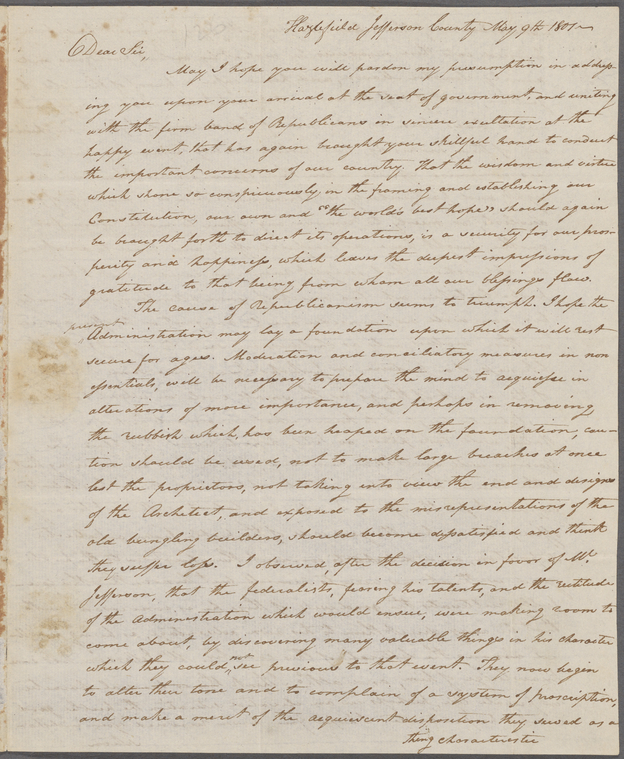 Hazlefield Jefferson County May 9th 1801
Dear Sir,
May I hope you will pardon my presumption in address
ing you upon your arrival at the seat of government, and uniting
with the firm band of Republicans in sincere exultation at the
happy event, that has again brought your skillful hand to conduct
the important concerns of our country. That the wisdom and virtue
which shone so conspicuously, in the framing and establishing our
Constitution, our own and "the world's best hope" should again
be brought forth to direct its operations, is a security for our pros-
perity and happiness, which leaves the deepest impressions of
gratitude to that being from whom all our blessings flow.
The cause of Republicanism seems to triumph. I hope the
present
Administration may lay a foundation upon which it will rest
secure for ages. Moderation and conciliatory measures in non
essentials, will be necessary to prepare the mind to acquiesce in
alterations of more importance, and perhaps in removing
the rubbish which, has been heaped on the foundation, cau-
tion should be used, not to make large breaches at once
lest the proprietors, not taking into view the end and designs
of the Architect, and exposed to the misrepresentations of the
old bungling builders, should become dissatisfied and think
they suffer loss. I observed, after the decision in favor of Mr.
Jefferson, that the federalists, fearing his talents, and the rectitude
of the administration which would ensue, were making room to
come about, by discovering many valuable things in his character
which they could not see previous to that event. They now begin
to alter their tone and to complain of a system of proscription,
and make a merit of the acquiescent disposition they shewed as a
thing characteristic